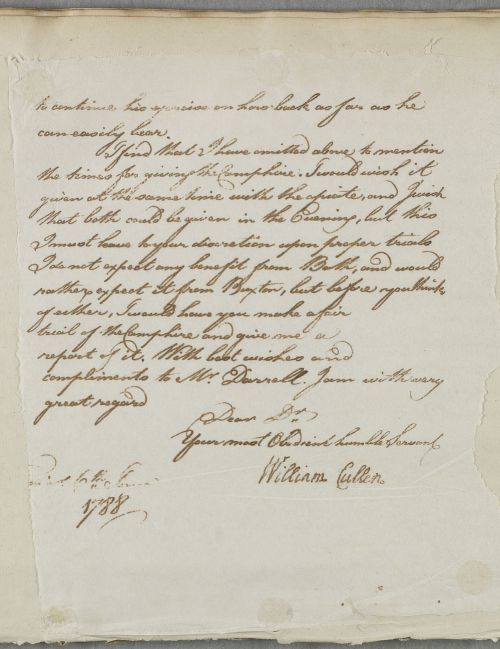 to continue his exercise on horseback as far as he
can easily bear.
I find that I have omitted above to mention
the times for giving the Camphire. I would wish it
given at the same time with the opiate, and I wish
that both could be given in the Evening, but this
I must leave to your discretion upon proper trials
I do not expect any benefit from Bath, and would
rather expect it from Buxton, but before you think
of either, I would have you make a fair
trial of the Camphire and give me a
report of it. With best wishes and
compliments to Mr. Darrell. I am with very
great regard
Dear Dr.
Your most Obedient humble Servant
William Cullen
1788